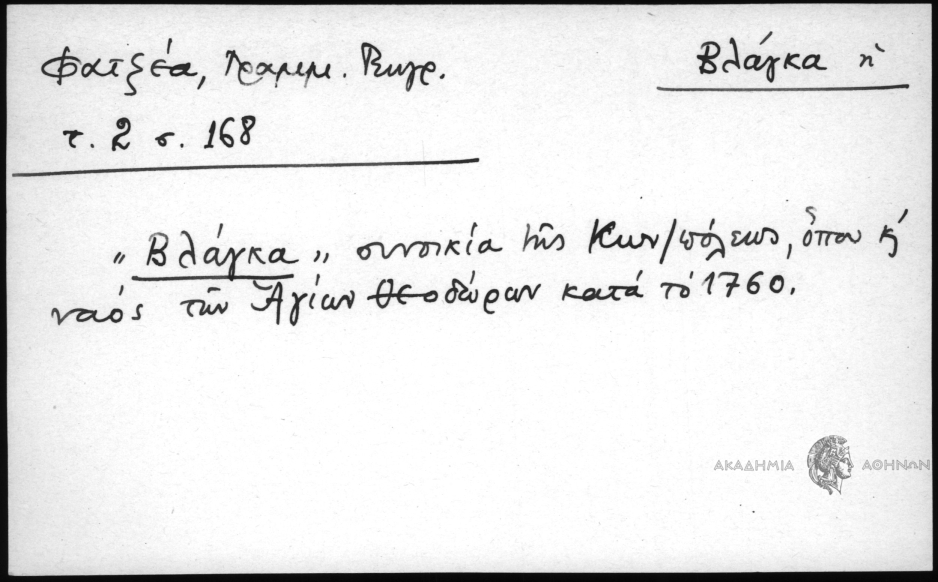 Φατζέα, Γραμμ. Πυργ.
Βλάγκα ἡ
τ. 2 σ. 168
„ Βλάγκα „ συνοικία τῆς Κων/πόλεως, ὅπου κ̀
ναός τῶν Ἁγίων Θεοδώρων κατά τό 1760.
ΑΚΑΔΗΜΙΑ ΑΘΗΝΩΝ